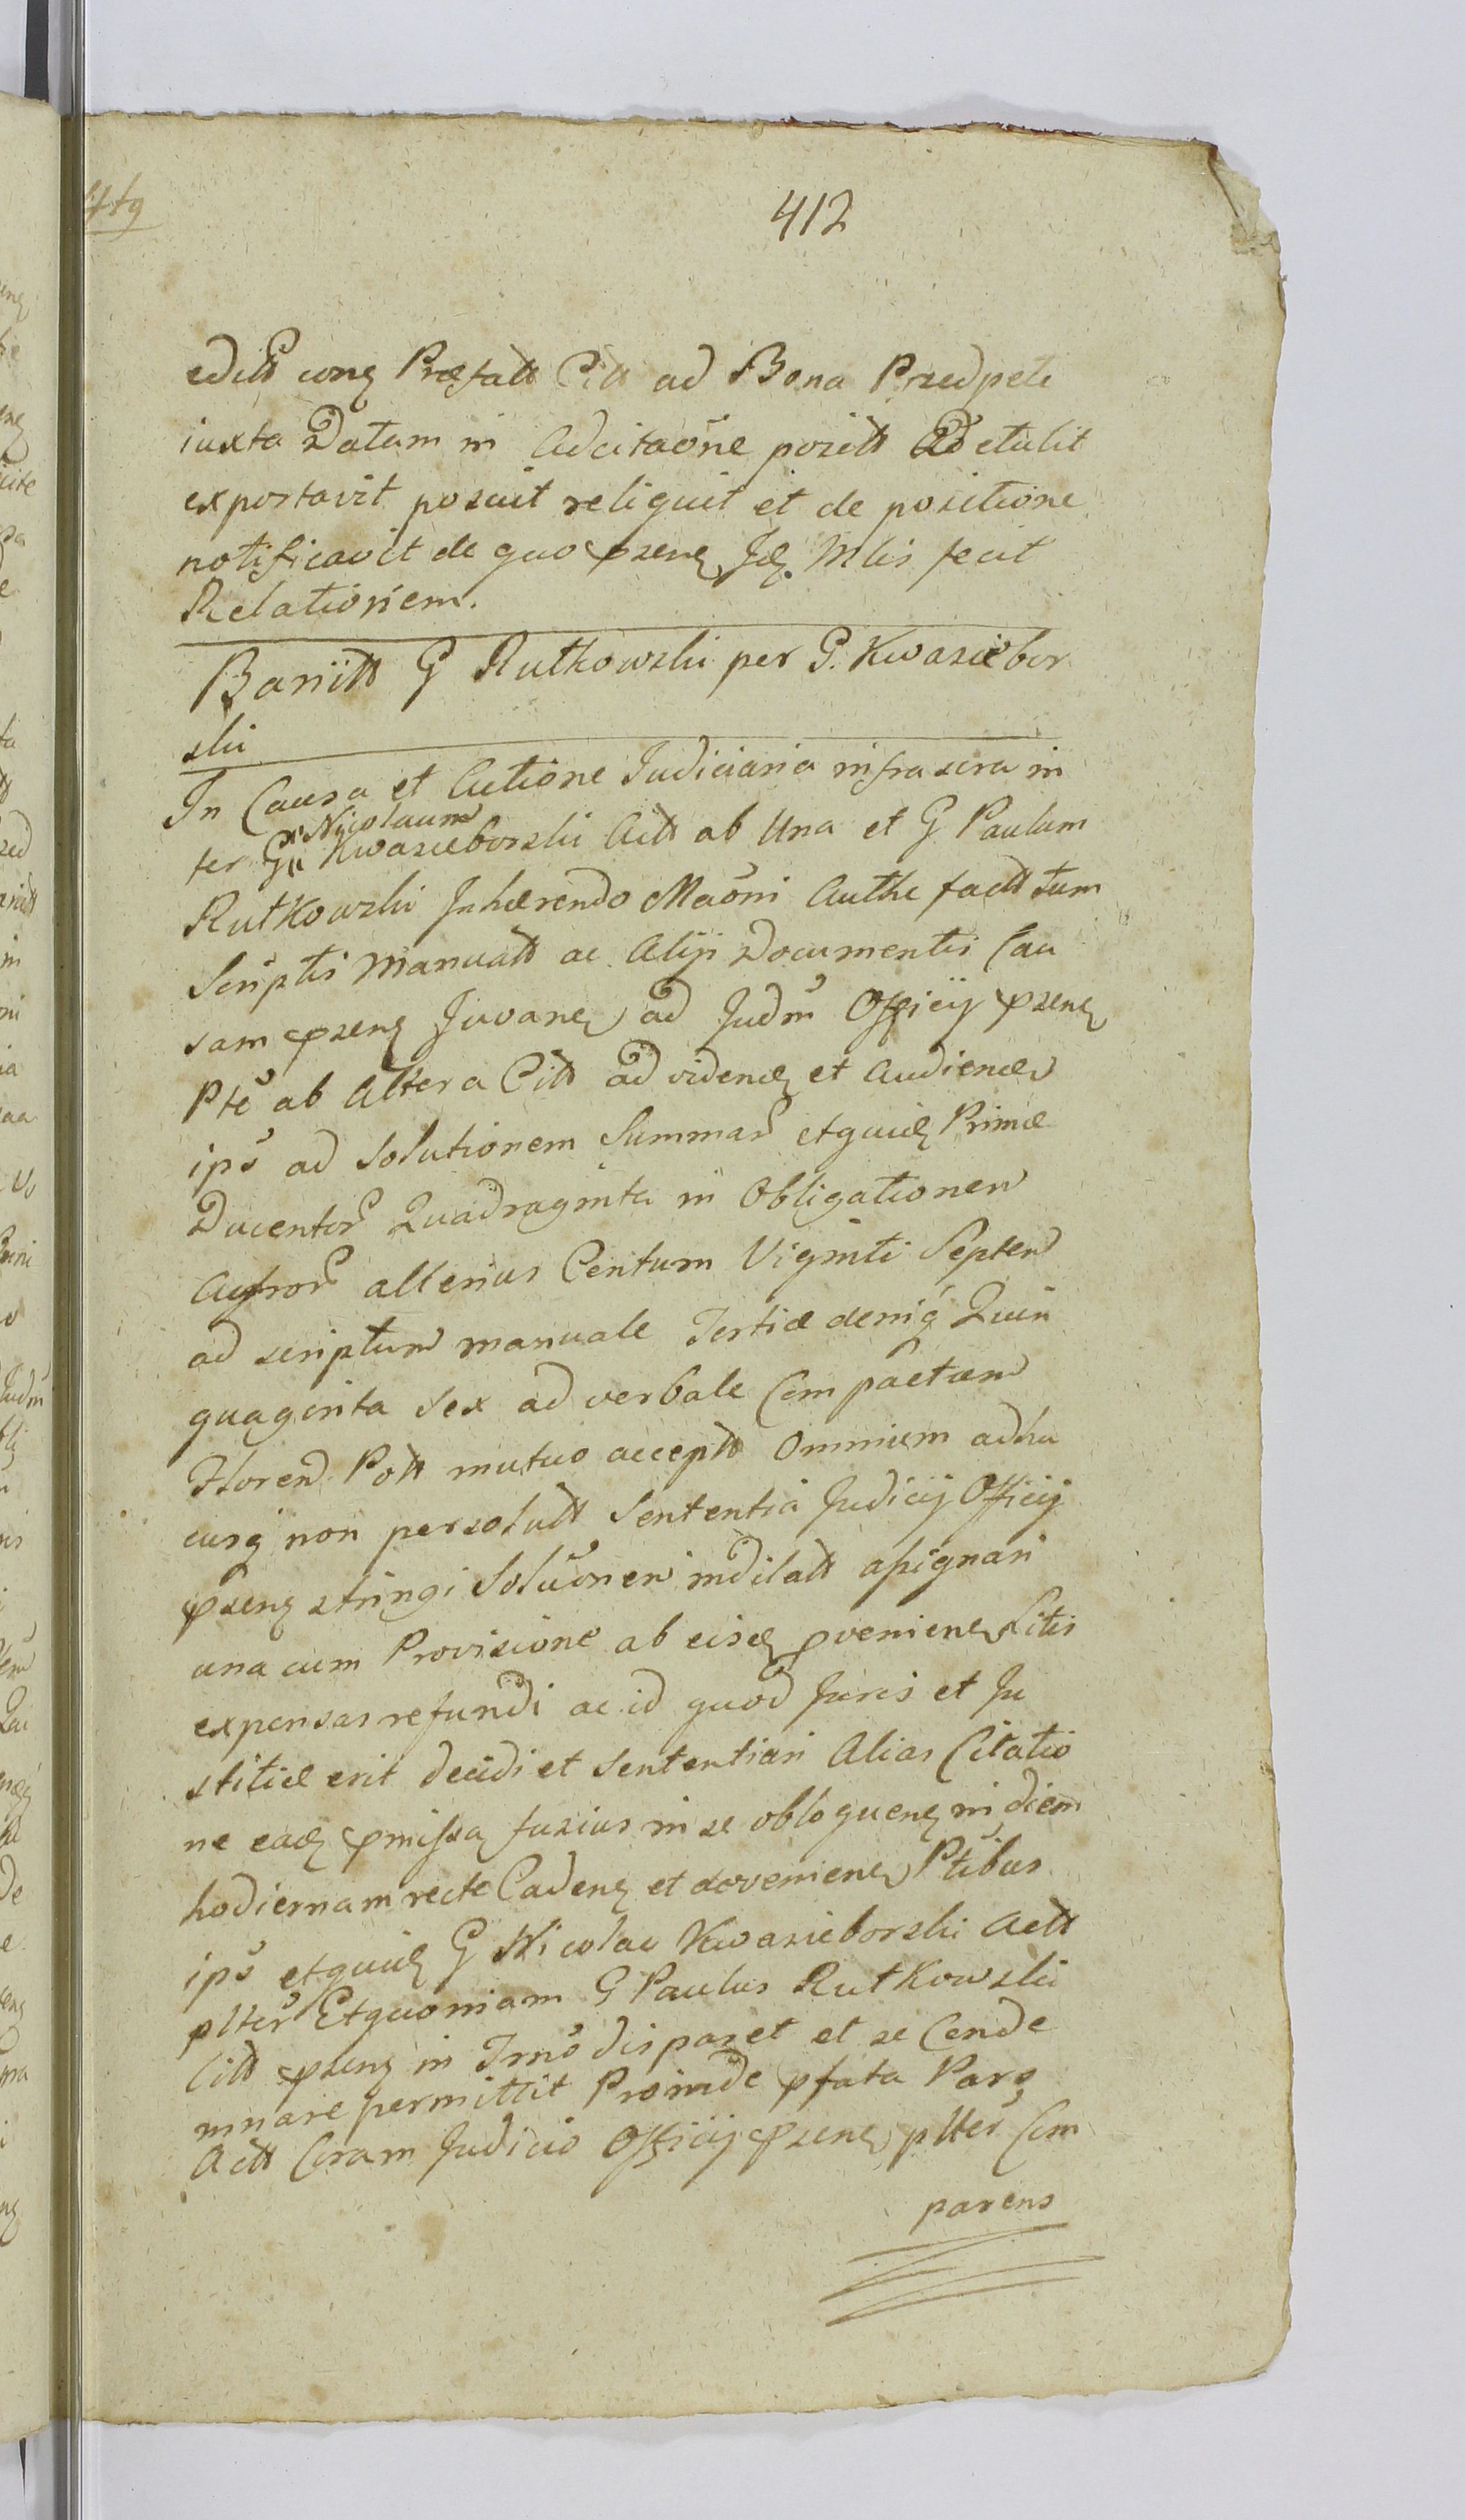 412
editt conꝫ Præfatt Citt ad Bona Przedpełe
iuxta Datam in Adcitaõne positt Adetulit
exportavit posuit reliquit et de positione
notificavit de quo pzenꝫ Jdꝫ Mlis fecit
Relationem.
Banitt G Rutkowski per G. Kwasiebor
ski
In Causa et Actione Judiciaria infrascra in
Nicolaum
ter G. Kwasieborski Actt ab Una et G Paulum
Rutkowski Inhærendo Maõni Authe factt tum
Scriptis Manuatt ac Alijs Documentis Cau
sam pzenꝫ Juvanꝫ ad Judm̃ Officij pzenꝫ
Pte ab Altera Citt ad videndꝫ et Audiendꝫ
ips̃ ad Solutionem Summar̃ etquidꝫ Primæ
Ducentor̃ Quadraginta in Obligationem
alterius Centum Viginti Septem
ad scriptum manuale Tertiæ deniq̃ Quin
quaginta Sex ad verbale Compactum
Floren̄ Pott mutuo acceptt Omnium adhu
cusq̃ non persolutt Sententia Judicij Officij
pzenꝫ stringi Solũonem indilatt assignari
una cum Provisione ab eisdꝫ pvenienꝫ Litis
expensas refundi ac id quod Juris et Ju
stitiæ erit decidi et Sententiari Alias Citatio
ne eadꝫ pmissa fusius in se obloquenꝫ in diem
hodiernam recte Cadenꝫ et devenienꝫ Ptibus
ips̃ etquidꝫ G Nicolao Kwasieborski Actt
plter̃ Etquoniam G Paulus Rutkowski
Citt pzenꝫ in Trn̄o disparet et se Conde
mnare permittit Proinde pfata Pars
Actt Coram Judicio Officij pzenꝫ plter̃ Com
parens